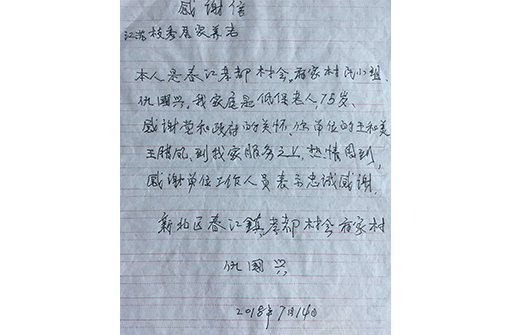 感谢信
江苏
居家养老
本人是春江孝都村会,蒋家村民小
仇国兴,我家庭是低保老人,75岁、
感谢党和政府的关怀,你单位的王和美
王腊凤、到我家服务之上,热情周到,
感谢单位工作人员表示忠诚感谢.
新北区春江镇孝都村会蒋家村
仇国兴
2018年7月14日